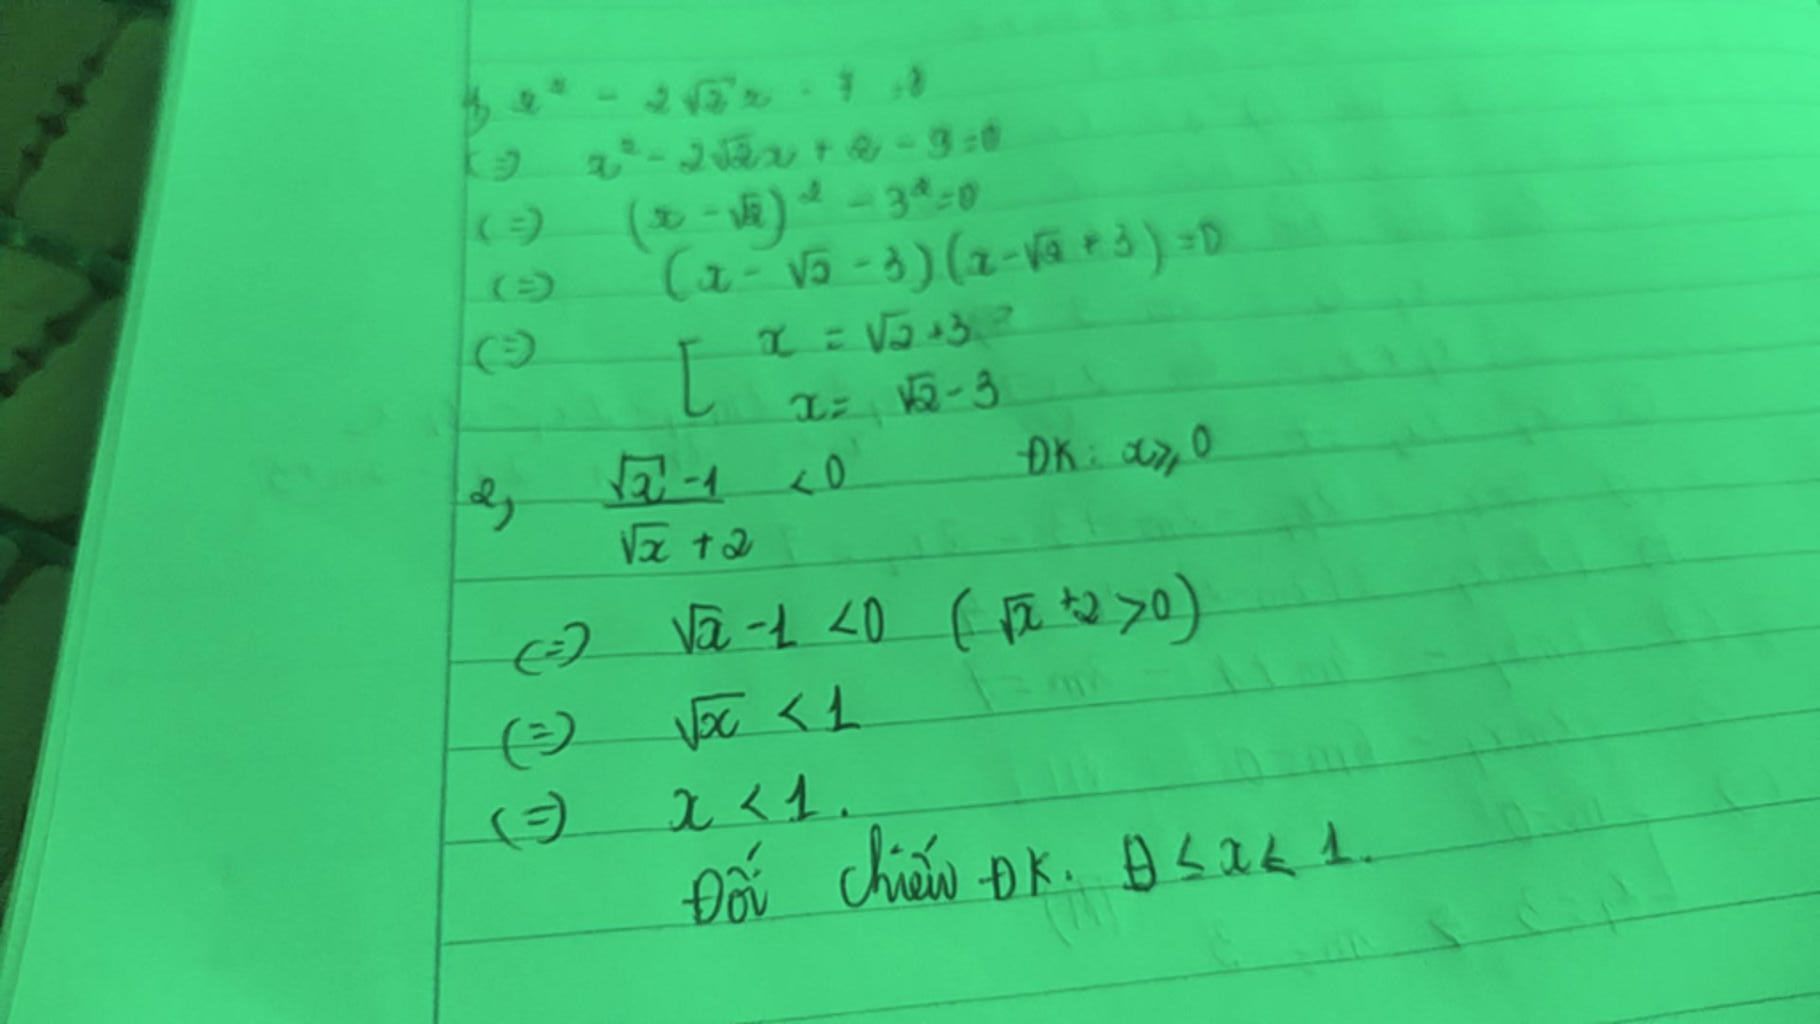 1, x² - 2√2 x - 7 = 0
<=> x² - 2√2x + 2 - 9 = 0
<=> (x - √2)² - 3² = 0
<=> (x - √2 - 3)(x - √2 + 3) = 0
<=> [ x = √2 + 3
x = √2 - 3
2, (√x - 1)/(√x + 2) < 0 ĐK: x ≥ 0
<=> √x - 1 < 0 (√x + 2 > 0)
<=> √x < 1
<=> x < 1.
Đối chiếu ĐK. 0 ≤ x < 1.